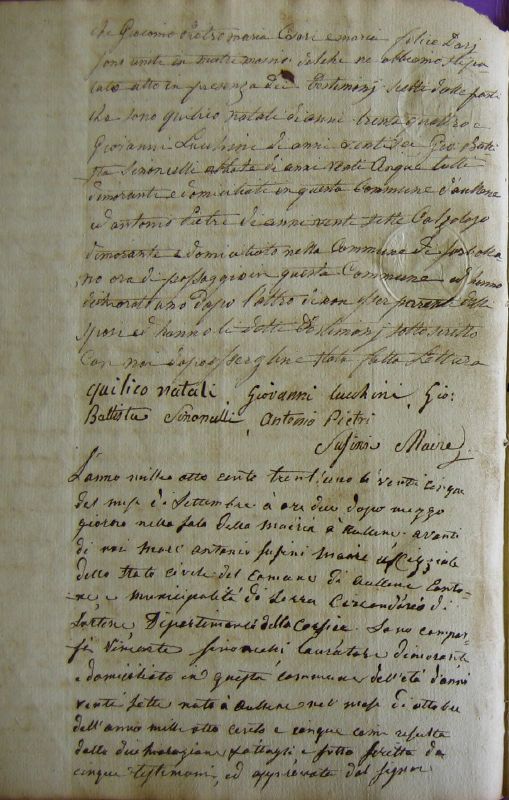 che Giacomo Pietro maria Cesari e maria felice Darj
sono uniti in matrimonio delche ne abbiamo stipo
lato atto in presenza dei testimonj scelti dalle parti
che sono quilico natali di anni trenta quattro e
Giovanni Lucchini di anni venti sei Gio: Batti
sta Sinonelli di anni venti cinque tutti
dimoranti e domiciliati in questa Commune d'aullene
ed antonio Pietri di anni venti sette Calzolajo
dimorante e domiciliato nella Commune di
ora di passaggio in questa Commune ed hanno
dichiarato uno dopo l'altro di non esser parenti delli
sposi ed hanno li detti Testimonj sottoscritto
Con noi dopo essergline stata fatta Lettura
quilico natali Giovanni Lucchini Gio:
Battista Sinonelli Antonio Pietri
Susini Maire
L'anno mille otto cento trent'uno li venti cinque
del mese di Settembre à ore due dopo mezzo
giorno nella sala della mairia à Aullene avanti
di noi Marc' Antonio Susini Maire uffizziale
dello Stato Civile del Comune di Aullene Canto
ne e municipalità di Serra Circondario di
Sartene Dipartimento della Corsica. Sono compar
si Vincente Sinonelli lauratore dimorante
e domiciliato in questa commune dell'età d'anni
venti sette nato à aullene nel mese di ottobre
dell'anno mille otto cento e cinque come risulta
dalla dichiarazione e sotto scritta da
cinque testimoni, ed approvata dal signor